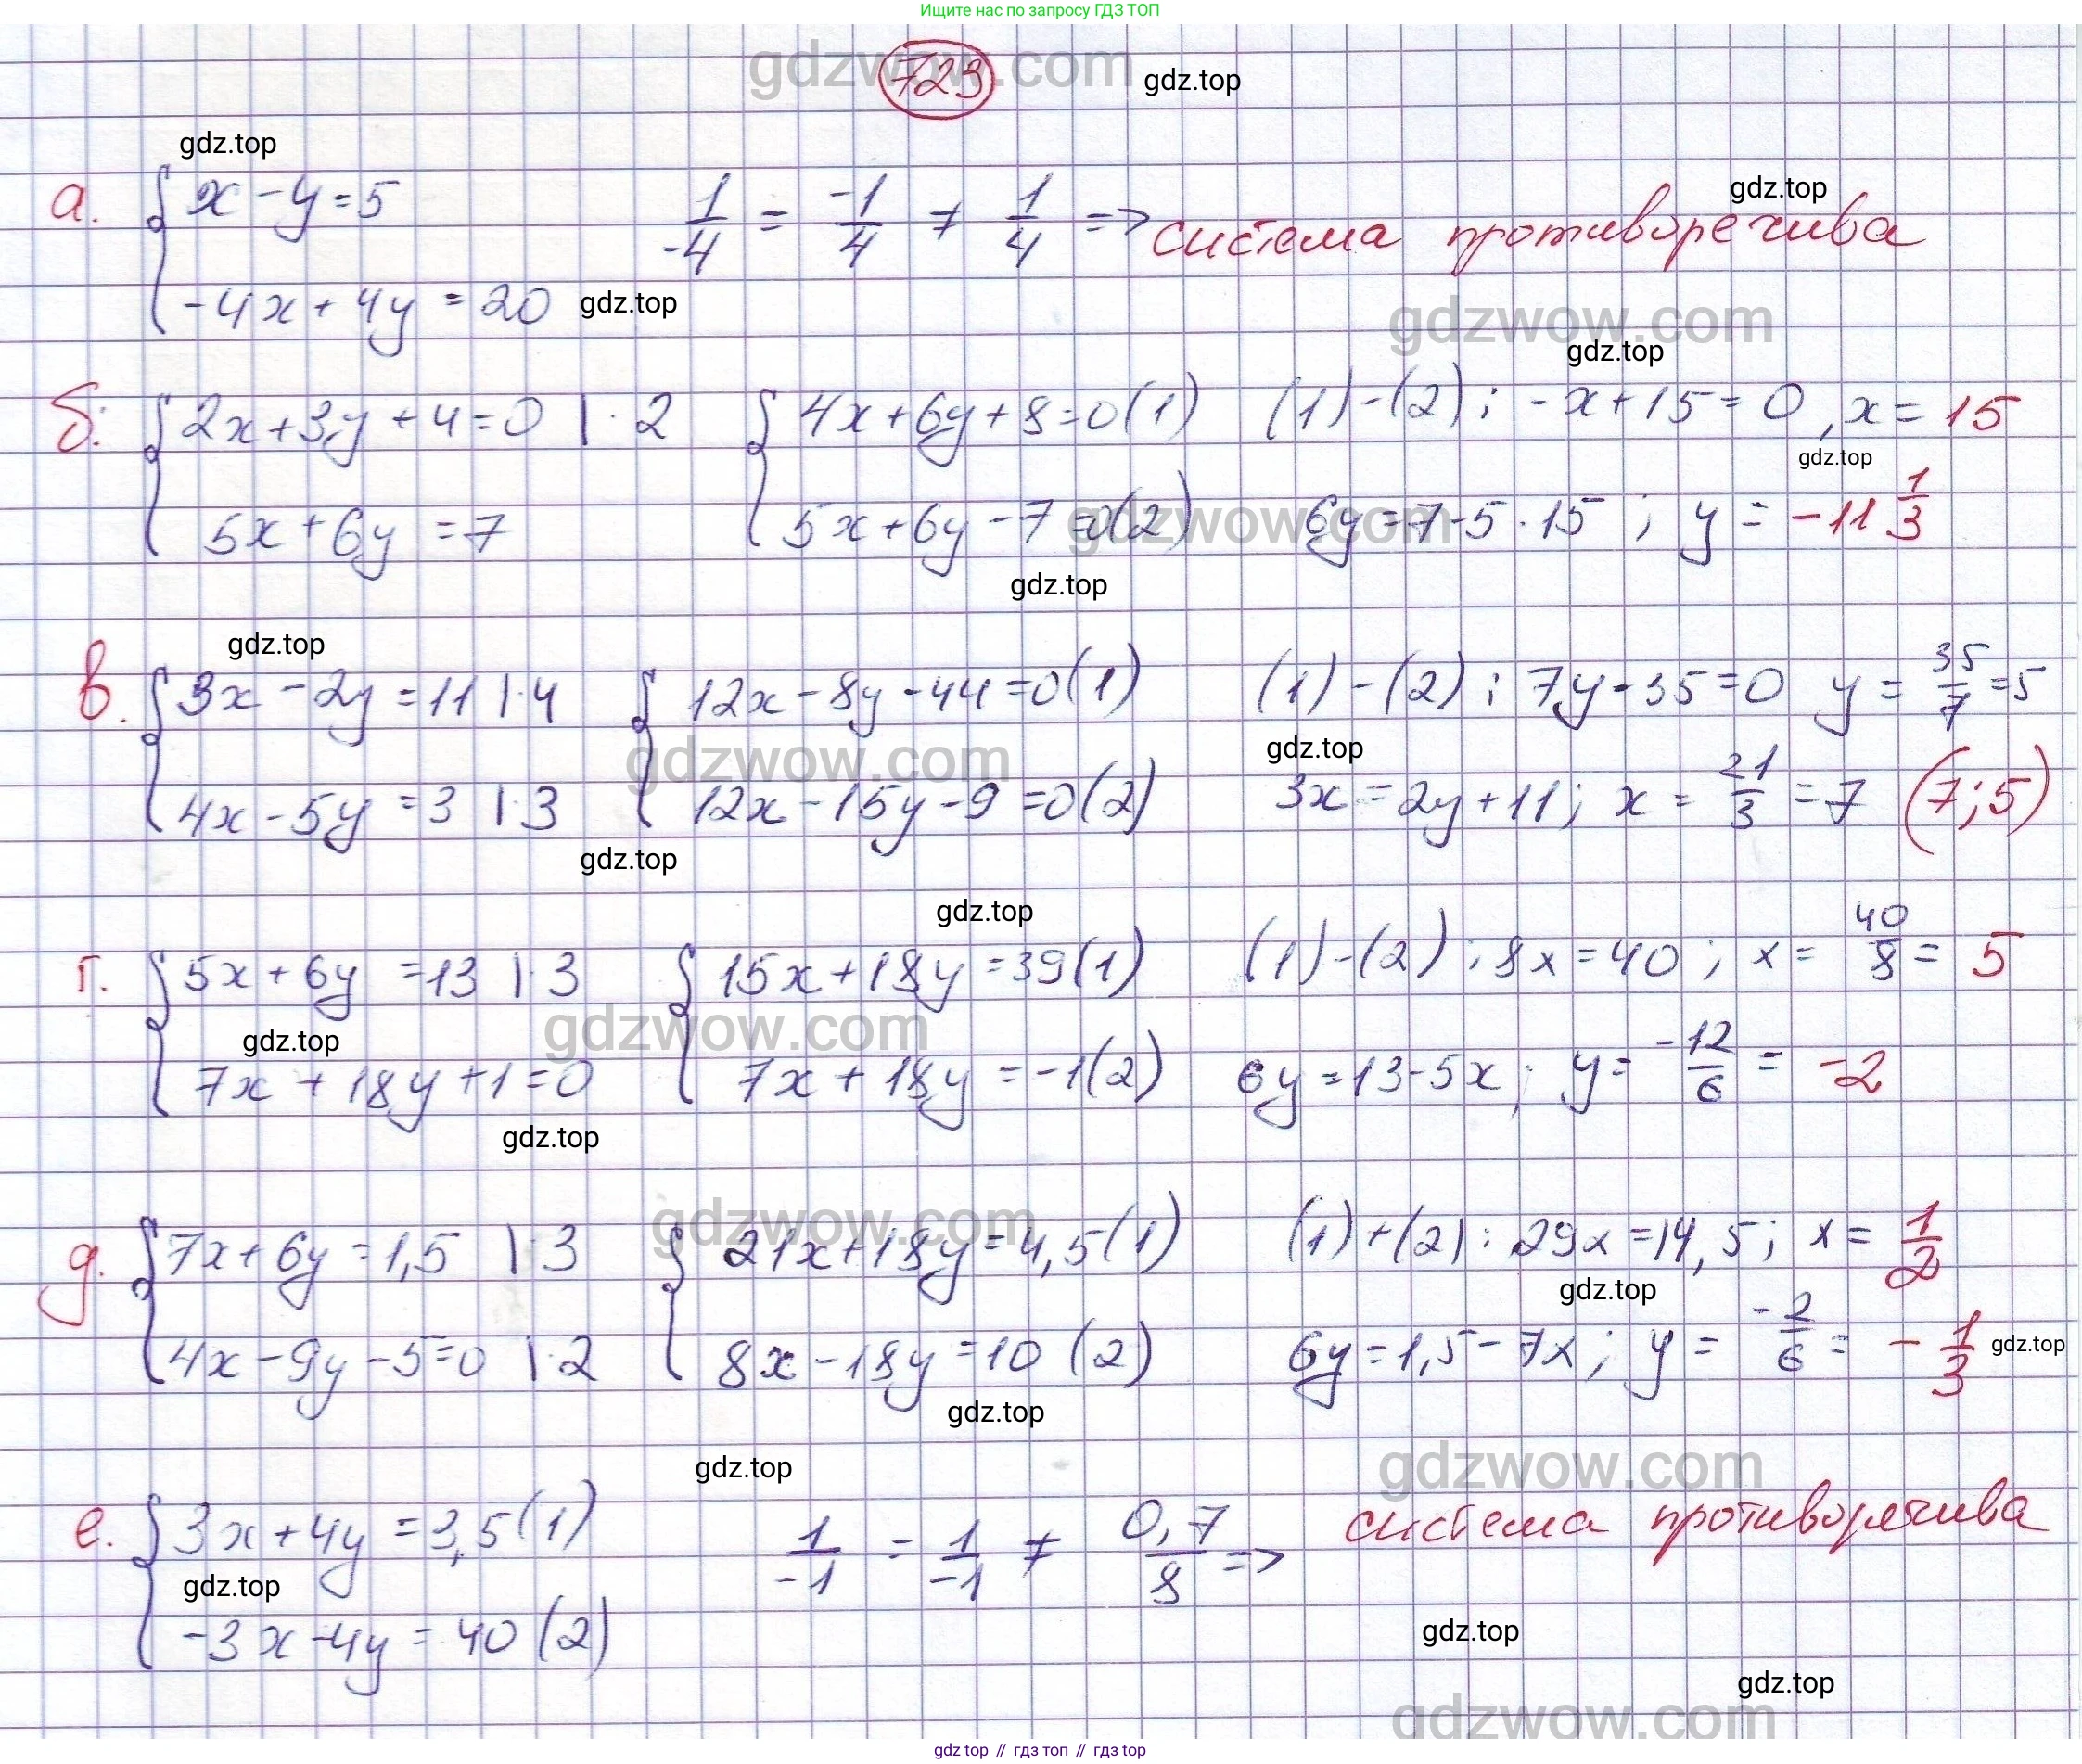 Ищите нас по запросу ГДЗ ТОП
gdzwow.com
723
gdz.top
gdz.top
а. { x - y = 5
-4x + 4y = 20
1/-4 = -1/4 ≠ 1/4 => система противоречива
gdz.top
gdz.top
gdzwow.com
gdz.top
б. { 2x + 3y + 4 = 0 | · 2
5x + 6y = 7
{ 4x + 6y + 8 = 0 (1)
5x + 6y - 7 = 0 (2)
(1) - (2); -x + 15 = 0, x = 15
gdz.top
6y = 7 - 5 · 15; y = -11 1/3
gdzwow.com
gdz.top
gdz.top
в. { 3x - 2y = 11 | · 4
4x - 5y = 3 | · 3
{ 12x - 8y - 44 = 0 (1)
12x - 15y - 9 = 0 (2)
(1) - (2); 7y - 35 = 0 y = 35/7 = 5
gdz.top
3x = 2y + 11; x = 21/3 = 7 (7; 5)
gdzwow.com
gdz.top
gdz.top
г. { 5x + 6y = 13 | · 3
7x + 18y + 1 = 0
{ 15x + 18y = 39 (1)
7x + 18y = -1 (2)
(1) - (2); 8x = 40; x = 40/8 = 5
6y = 13 - 5x; y = -12/6 = -2
gdzwow.com
gdz.top
gdz.top
gdzwow.com
д. { 7x + 6y = 1,5 | · 3
4x - 9y - 5 = 0 | · 2
{ 21x + 18y = 4,5 (1)
8x - 18y = 10 (2)
(1) + (2): 29x = 14,5; x = 1/2
gdz.top
6y = 1,5 - 7x; y = -2/6 = -1/3
gdz.top
gdz.top
gdz.top
gdzwow.com
е. { 3x + 4y = 3,5 (1)
-3x - 4y = 40 (2)
1/-1 = 1/-1 ≠ 0,7/8 => система противоречива
gdz.top
gdz.top
gdz.top
gdzwow.com
gdz top // гдз топ // гдз top